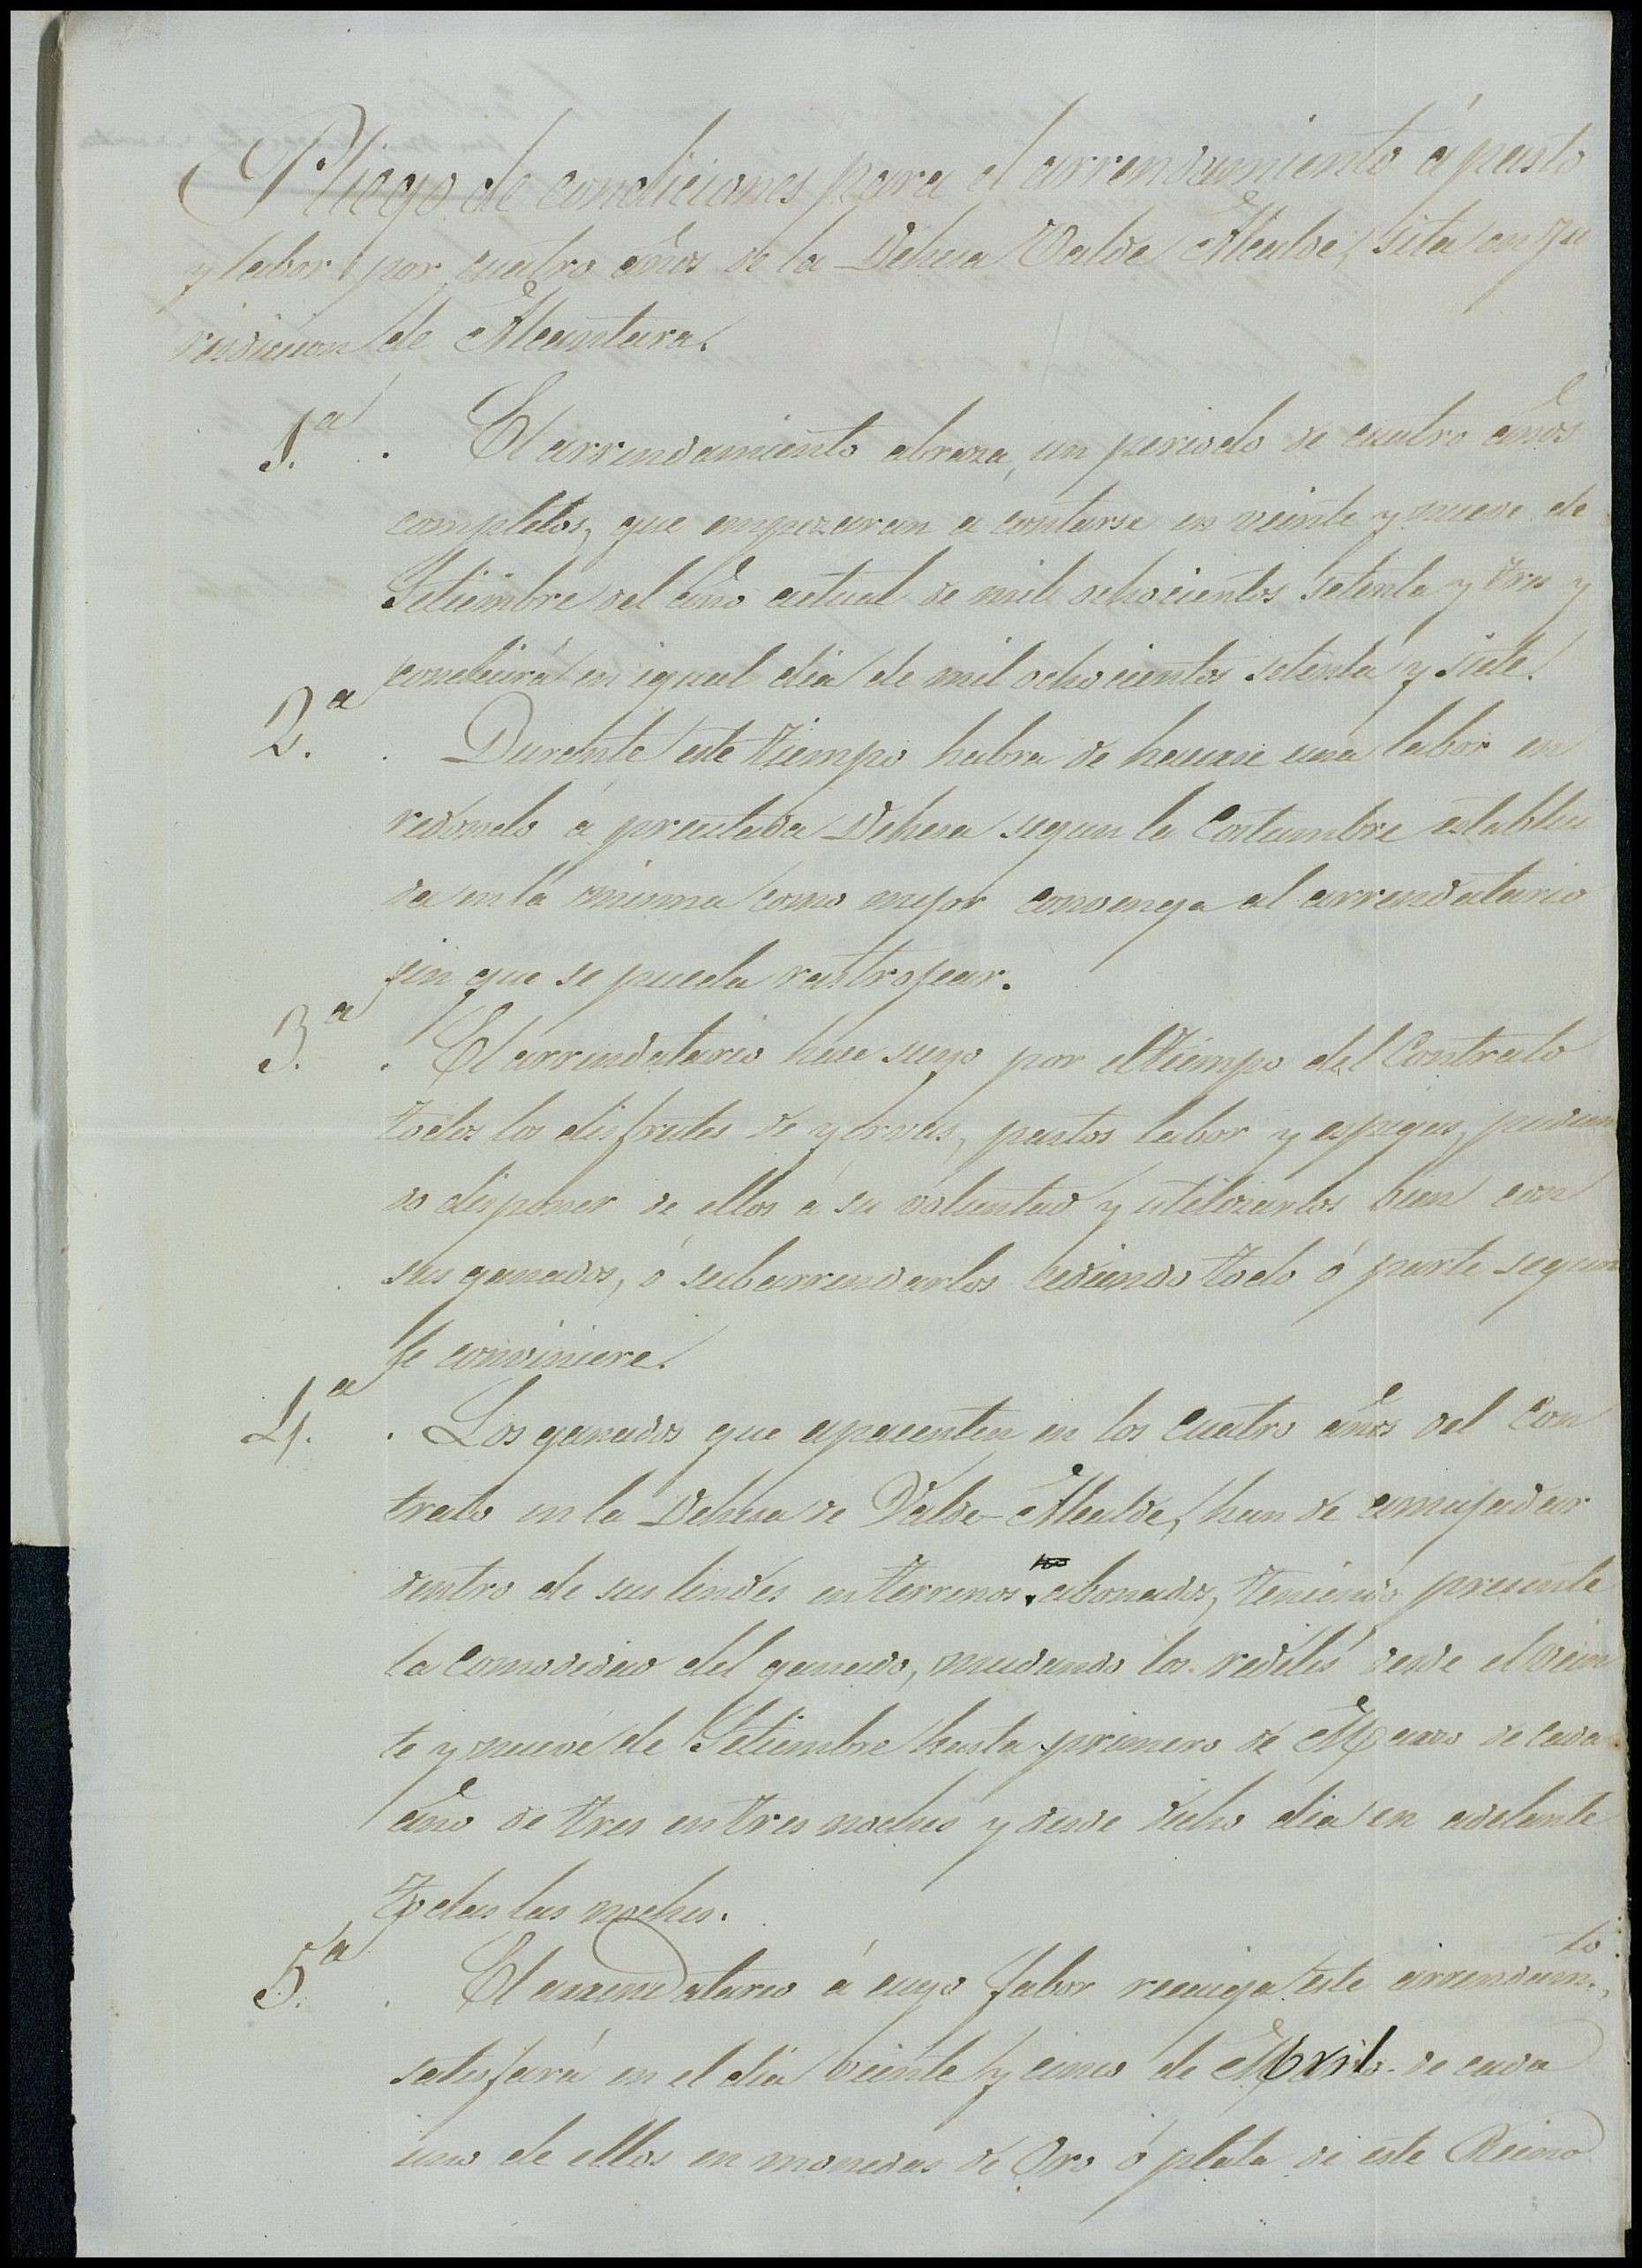 Pliego de condiciones para el arrendamiento á pasto
y labor por cuatro años de la Dehesa Valde Alcalde, sita en Ju
risdicion de Alcantara.
1.ª El arrendamiento abraza, un periodo de cuatro años
completos, que empezaran a contarse en veinte y nueve de
Setiembre del año actual de mil ochocientos setenta y tres y
concluirá en igual dia de mil ochocientos setenta y siete.
2.ª Durante este tiempo habra de hacerse una labor en
redondo á precitada Dehesa segun la Costumbre estableci
da en la misma como mejor convenga al arrendatario
sin que se pueda rastrojear.
3.ª El arrendatario hace suyo por el tiempo del Contrato
todos los disfrutes de yervas, pastos labor y espigas, pudien
do disponer de ellos á su voluntad y utilizarlos bien con
sus ganados, ó subarrendarlos cediendo todo ó parte segun
le conviniere.
4.ª Los ganados que apacenten en los cuatro años del Con
trato en la Dehesa de Valde-Alcalde, han de amajadar
dentro de sus lindes en terrenos abonados, teniendo presente
la comodidad del ganado, mudando los rediles desde el vein
te y nueve de Setiembre hasta primero de Marzo de cada
año de tres en tres noches y desde dicho dia en adelante
todas las noches.
5.ª El arrendatario á cuyo fabor recaiga este arrendam.to,
satisfará en el dia veinte y cinco de Abril de cada
uno de ellos en monedas de Oro ó plata de este Reino